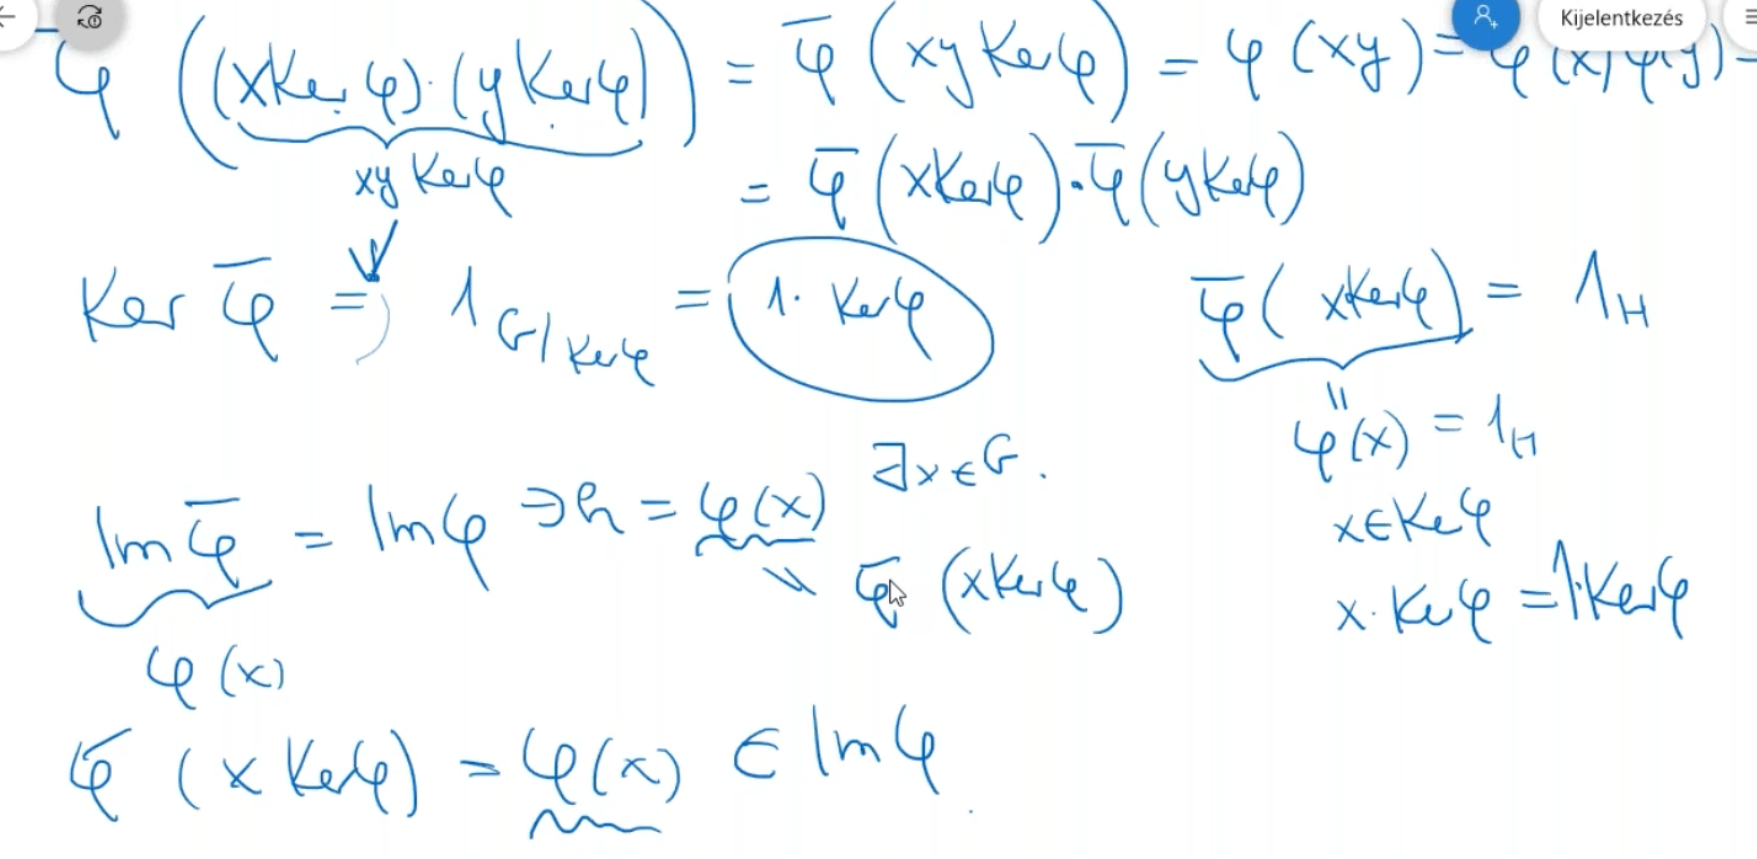 Kijelentkezés
φ̄ ((xKer φ)·(y Kerφ)) = φ̄ (xy Kerφ) = φ (xy) = φ(x) φ(y) =
xy Kerφ
= φ̄ (xKerφ)·φ̄ (yKerφ)
Ker φ̄ = 1_{G/Kerφ} = 1· Kerφ
φ̄ ( xKerφ) = 1_H
"
φ(x) = 1_H
x∈Kerφ
x·Kerφ = 1·Kerφ
Im φ̄ = Imφ ∋ h = φ(x) ∃x∈G.
φ̄ (xKerφ)
φ(x)
φ̄ (x Kerφ) = φ(x) ∈ Imφ